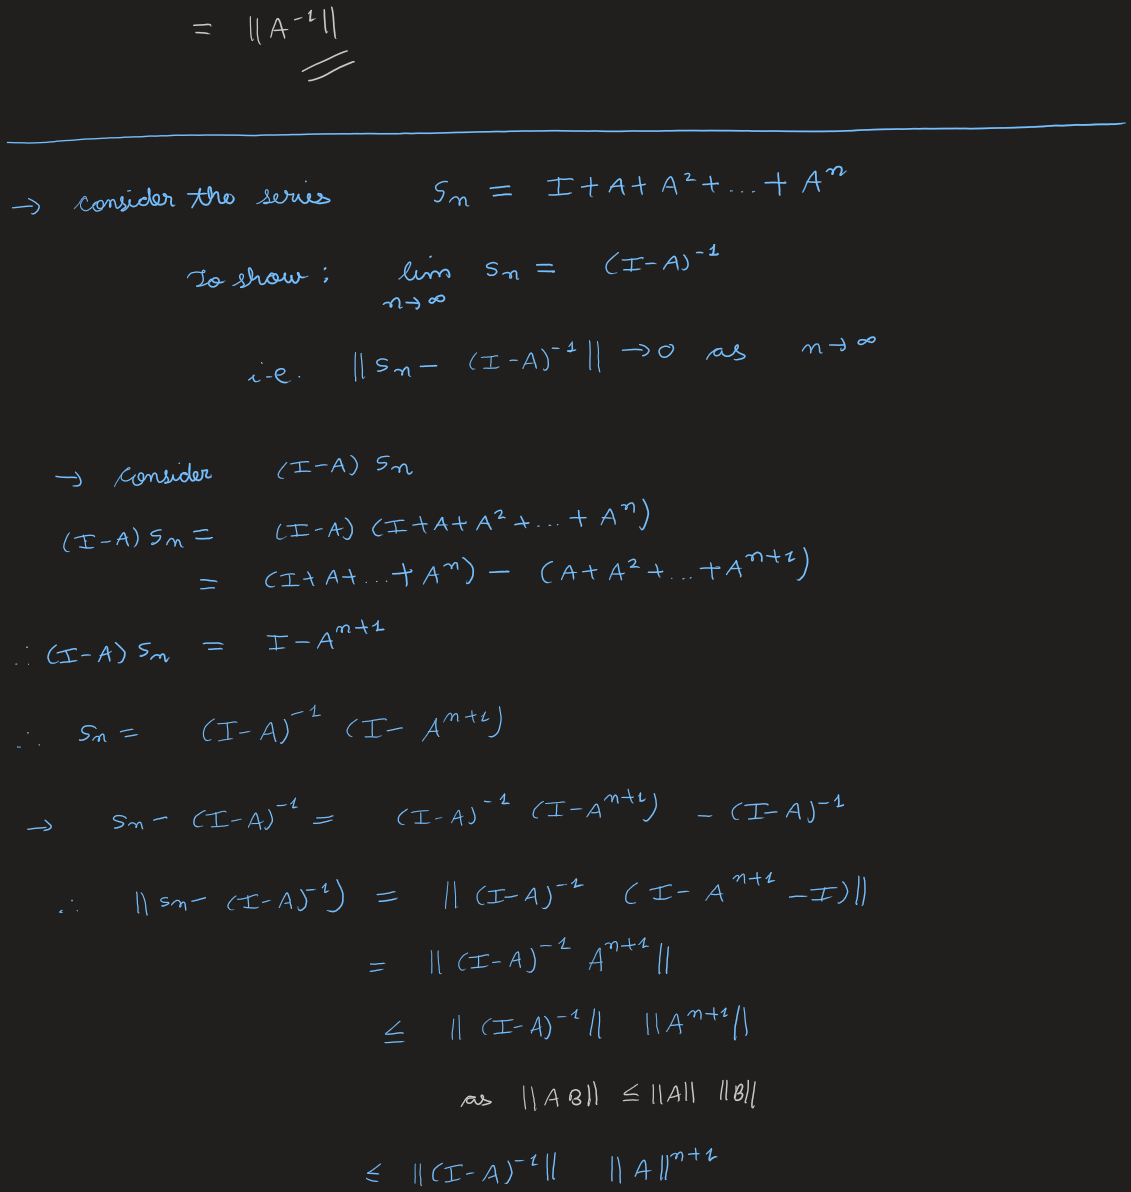 = ||A⁻¹||
→ consider the series Sn = I + A + A² + ... + Aⁿ
To show : lim Sn = (I-A)⁻¹
n→∞
i.e. ||Sn - (I-A)⁻¹|| → 0 as n→∞
→ consider (I-A) Sn
(I-A) Sn = (I-A) (I+A+A²+...+Aⁿ)
= (I+A+...+Aⁿ) - (A+A²+...+Aⁿ⁺¹)
∴ (I-A) Sn = I-Aⁿ⁺¹
∴ Sn = (I-A)⁻¹ (I-Aⁿ⁺¹)
→ Sn - (I-A)⁻¹ = (I-A)⁻¹ (I-Aⁿ⁺¹) - (I-A)⁻¹
∴ ||Sn - (I-A)⁻¹) = ||(I-A)⁻¹ (I-Aⁿ⁺¹-I)||
= ||(I-A)⁻¹ Aⁿ⁺¹||
≤ ||(I-A)⁻¹|| ||Aⁿ⁺¹||
as ||AB|| ≤ ||A|| ||B||
≤ ||(I-A)⁻¹|| ||A||ⁿ⁺¹